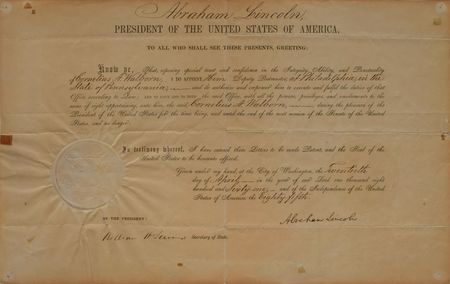 Abraham Lincoln,
PRESIDENT OF THE UNITED STATES OF AMERICA,
TO ALL WHO SHALL SEE THESE PRESENTS, GREETING:
Know ye, That, reposing special trust and confidence in the Integrity, Ability, and Punctuality
of Cornelius A. Walborn, I DO APPOINT him Deputy Postmaster, at Philadelphia, in the
State of Pennsylvania, and do authorize and empower him to execute and fulfil the duties of that
Office according to Law; AND TO HAVE AND TO HOLD the said Office, with all the powers, privileges, and emoluments to the
same of right appertaining, unto him, the said Cornelius A. Walborn, during the pleasure of the
President of the United States for the time being, and until the end of the next session of the Senate of the United
States, and no longer.
In testimony whereof, I have caused these Letters to be made Patent, and the Seal of the
United States to be hereunto affixed.
Given under my hand, at the City of Washington, the Twentieth
day of April in the year of our Lord one thousand eight
hundred and sixty one, and of the Independence of the United
States of America, the Eighty fifth.
Abraham Lincoln
BY THE PRESIDENT:
William H. Seward Secretary of State.